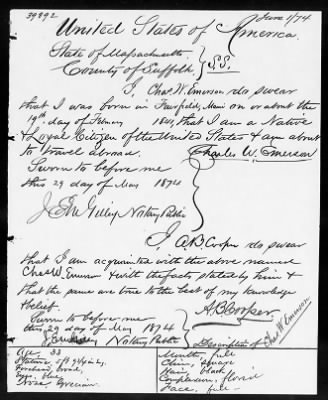 39892
June 1/74
United States of America.
State of Massachusetts
County of Suffolk. } S.S.
I, Chas. W. Emerson do swear
that I was born in Fairfield, Maine on or about the
19th day of February 1841, that I am a Native
& Loyal Citizen of the United States & am about
to travel abroad. Charles W. Emerson
Sworn to before me
this 29 day of May 1874
Notary Public
I, A.B. Cooper do swear
that I am acquainted with the above named
Chas W. Emerson & with the facts stated by him &
that the same are true to the best of my knowledge
& belief. A.B. Cooper
Sworn to before me
this 29 day of May 1874
Notary Public
Description of Chas W. Emerson
Age 33
Stature 5 ft 9¼ in
Forehead, broad,
Eyes, blue
Nose, Grecian
Mouth, full
Chin, square
Hair, black
Complexion, florid
Face, full